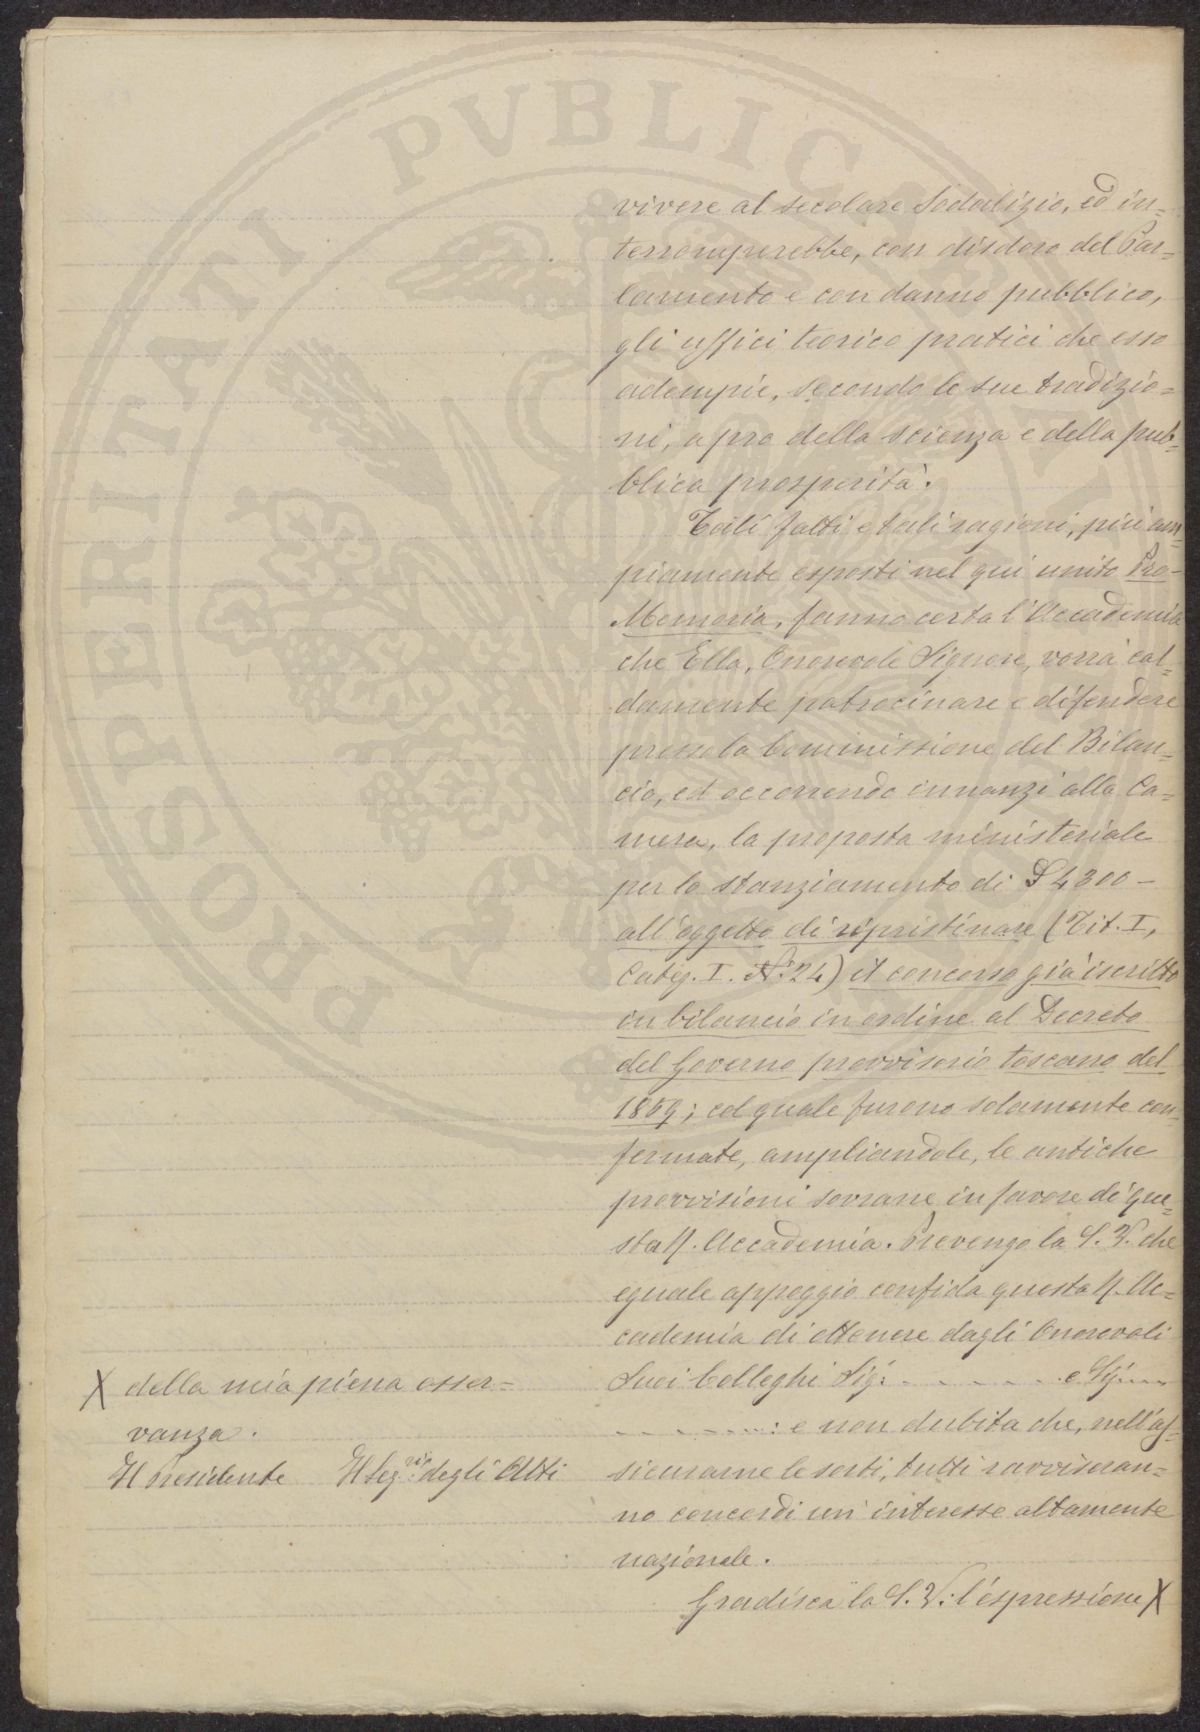 vivere al secolare Sodalizio, ed in=
terromperebbe, con disdoro del Par=
lamento e con danno pubblico,
gli uffici teorico pratici che esso
adempie, secondo le sue tradizio=
ni, a pro della scienza e della pub=
blica prosperità.
Tali fatti e tali ragioni, più am=
piamente esposti nel qui unito Pro-
Memoria, fanno certa l'Accademia
che Ella, Onorevole Signore, vorrà cal=
damente patrocinare e difendere
presso la Commissione del Bilan=
cio, ed occorrendo innanzi alla Ca=
mera, la proposta ministeriale
per lo stanziamento di £ 4300 -
all'oggetto di ripristinare (Tit. I,
Categ. I. N.° 24) il concorso già iscritto
in bilancio in ordine al Decreto
del Governo provvisorio toscano del
1859; col quale furono solamente con=
fermate, ampliandole, le antiche
provvisioni sovrane in favore di que=
sta R. Accademia. Prevengo la S. V. che
eguale appoggio confida questa R. Ac=
cademia di ottenere dagli Onorevoli
Suoi Colleghi Sig: - - - - - - - e Sig: - - -
- - - - - - - : e non dubita che, nell'as=
sicurarne le sorti, tutti ravviseran=
no concordi un interesse altamente
nazionale.
Gradisca la S. V. l'espressione X
X della mia piena osser=
vanza.
Il Presidente Il Seg.rio degli Atti
PROSPERITATI PVBLICAE